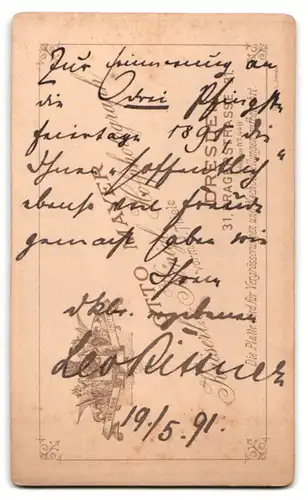 Zur Erinnerung an
die drei Pfingst-
feiertage 1891 die
Ihnen „hoffentlich"
ebenso viel Freude
gemacht haben wie
Ihrem
dkbr. ergebenen
Leo Rittner
19./5. 91.
OTTO MAYER
DRESDEN
31, PRAGERSTRASSE, 31.
Die Platte wird für Vergrösserungen und Nachbestellungen aufbewahrt